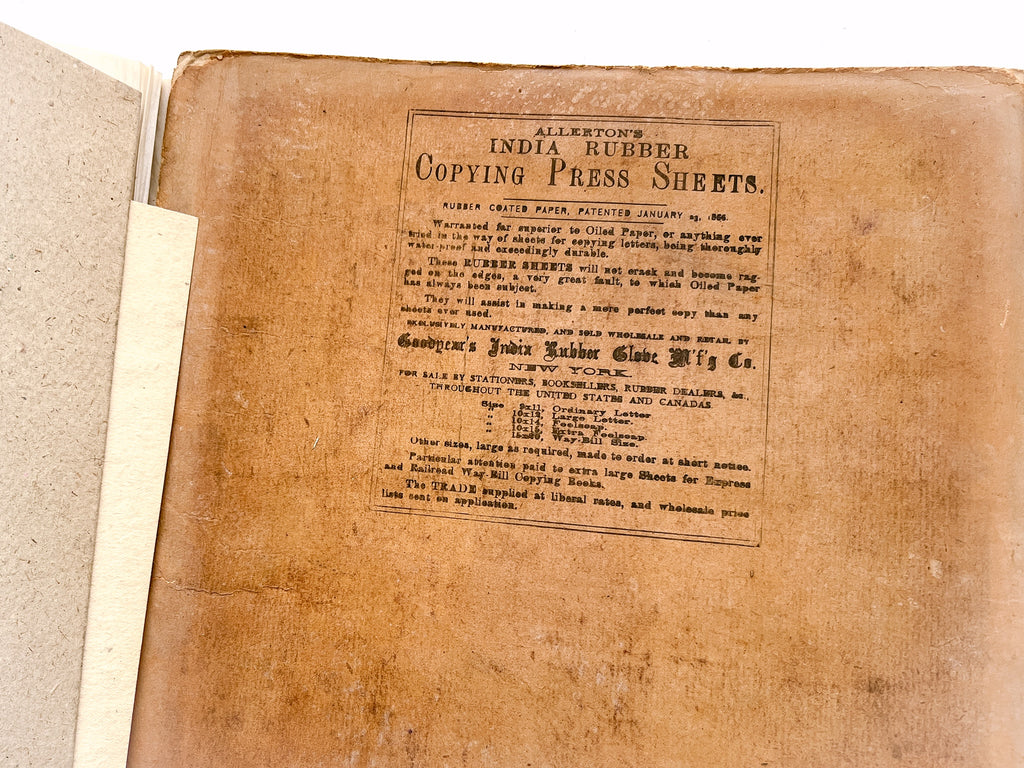 ALLERTON'S
INDIA RUBBER
COPYING PRESS SHEETS.
RUBBER COATED PAPER, PATENTED JANUARY 23, 1866.
Warranted far superior to Oiled Paper, or anything ever
tried in the way of sheets for copying letters, being thoroughly
water-proof and exceedingly durable.
These RUBBER SHEETS will not crack and become rag-
ged on the edges, a very great fault, to which Oiled Paper
has always been subject.
They will assist in making a more perfect copy than any
sheets ever used.
EXCLUSIVELY MANUFACTURED, AND SOLD WHOLESALE AND RETAIL BY
Goodyear's India Rubber Glove M'f'g Co.
NEW YORK.
FOR SALE BY STATIONERS, BOOKSELLERS, RUBBER DEALERS, &c.,
THROUGHOUT THE UNITED STATES AND CANADAS.
Size 9x11, Ordinary Letter
" 10x12, Large Letter.
" 10x14, Foolscap.
" 10x16, Extra Foolscap
" Way-Bill Size.
Other sizes, large as required, made to order at short notice.
Particular attention paid to extra large Sheets for Express
and Railroad Way-Bill Copying Books.
The TRADE supplied at liberal rates, and wholesale price
lists sent on application.